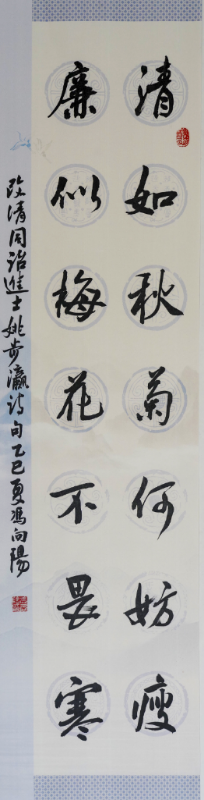 清如秋菊何妨瘦
廉似梅花不畏寒
改清同治進士姚步瀛詩句乙巳夏馮向陽